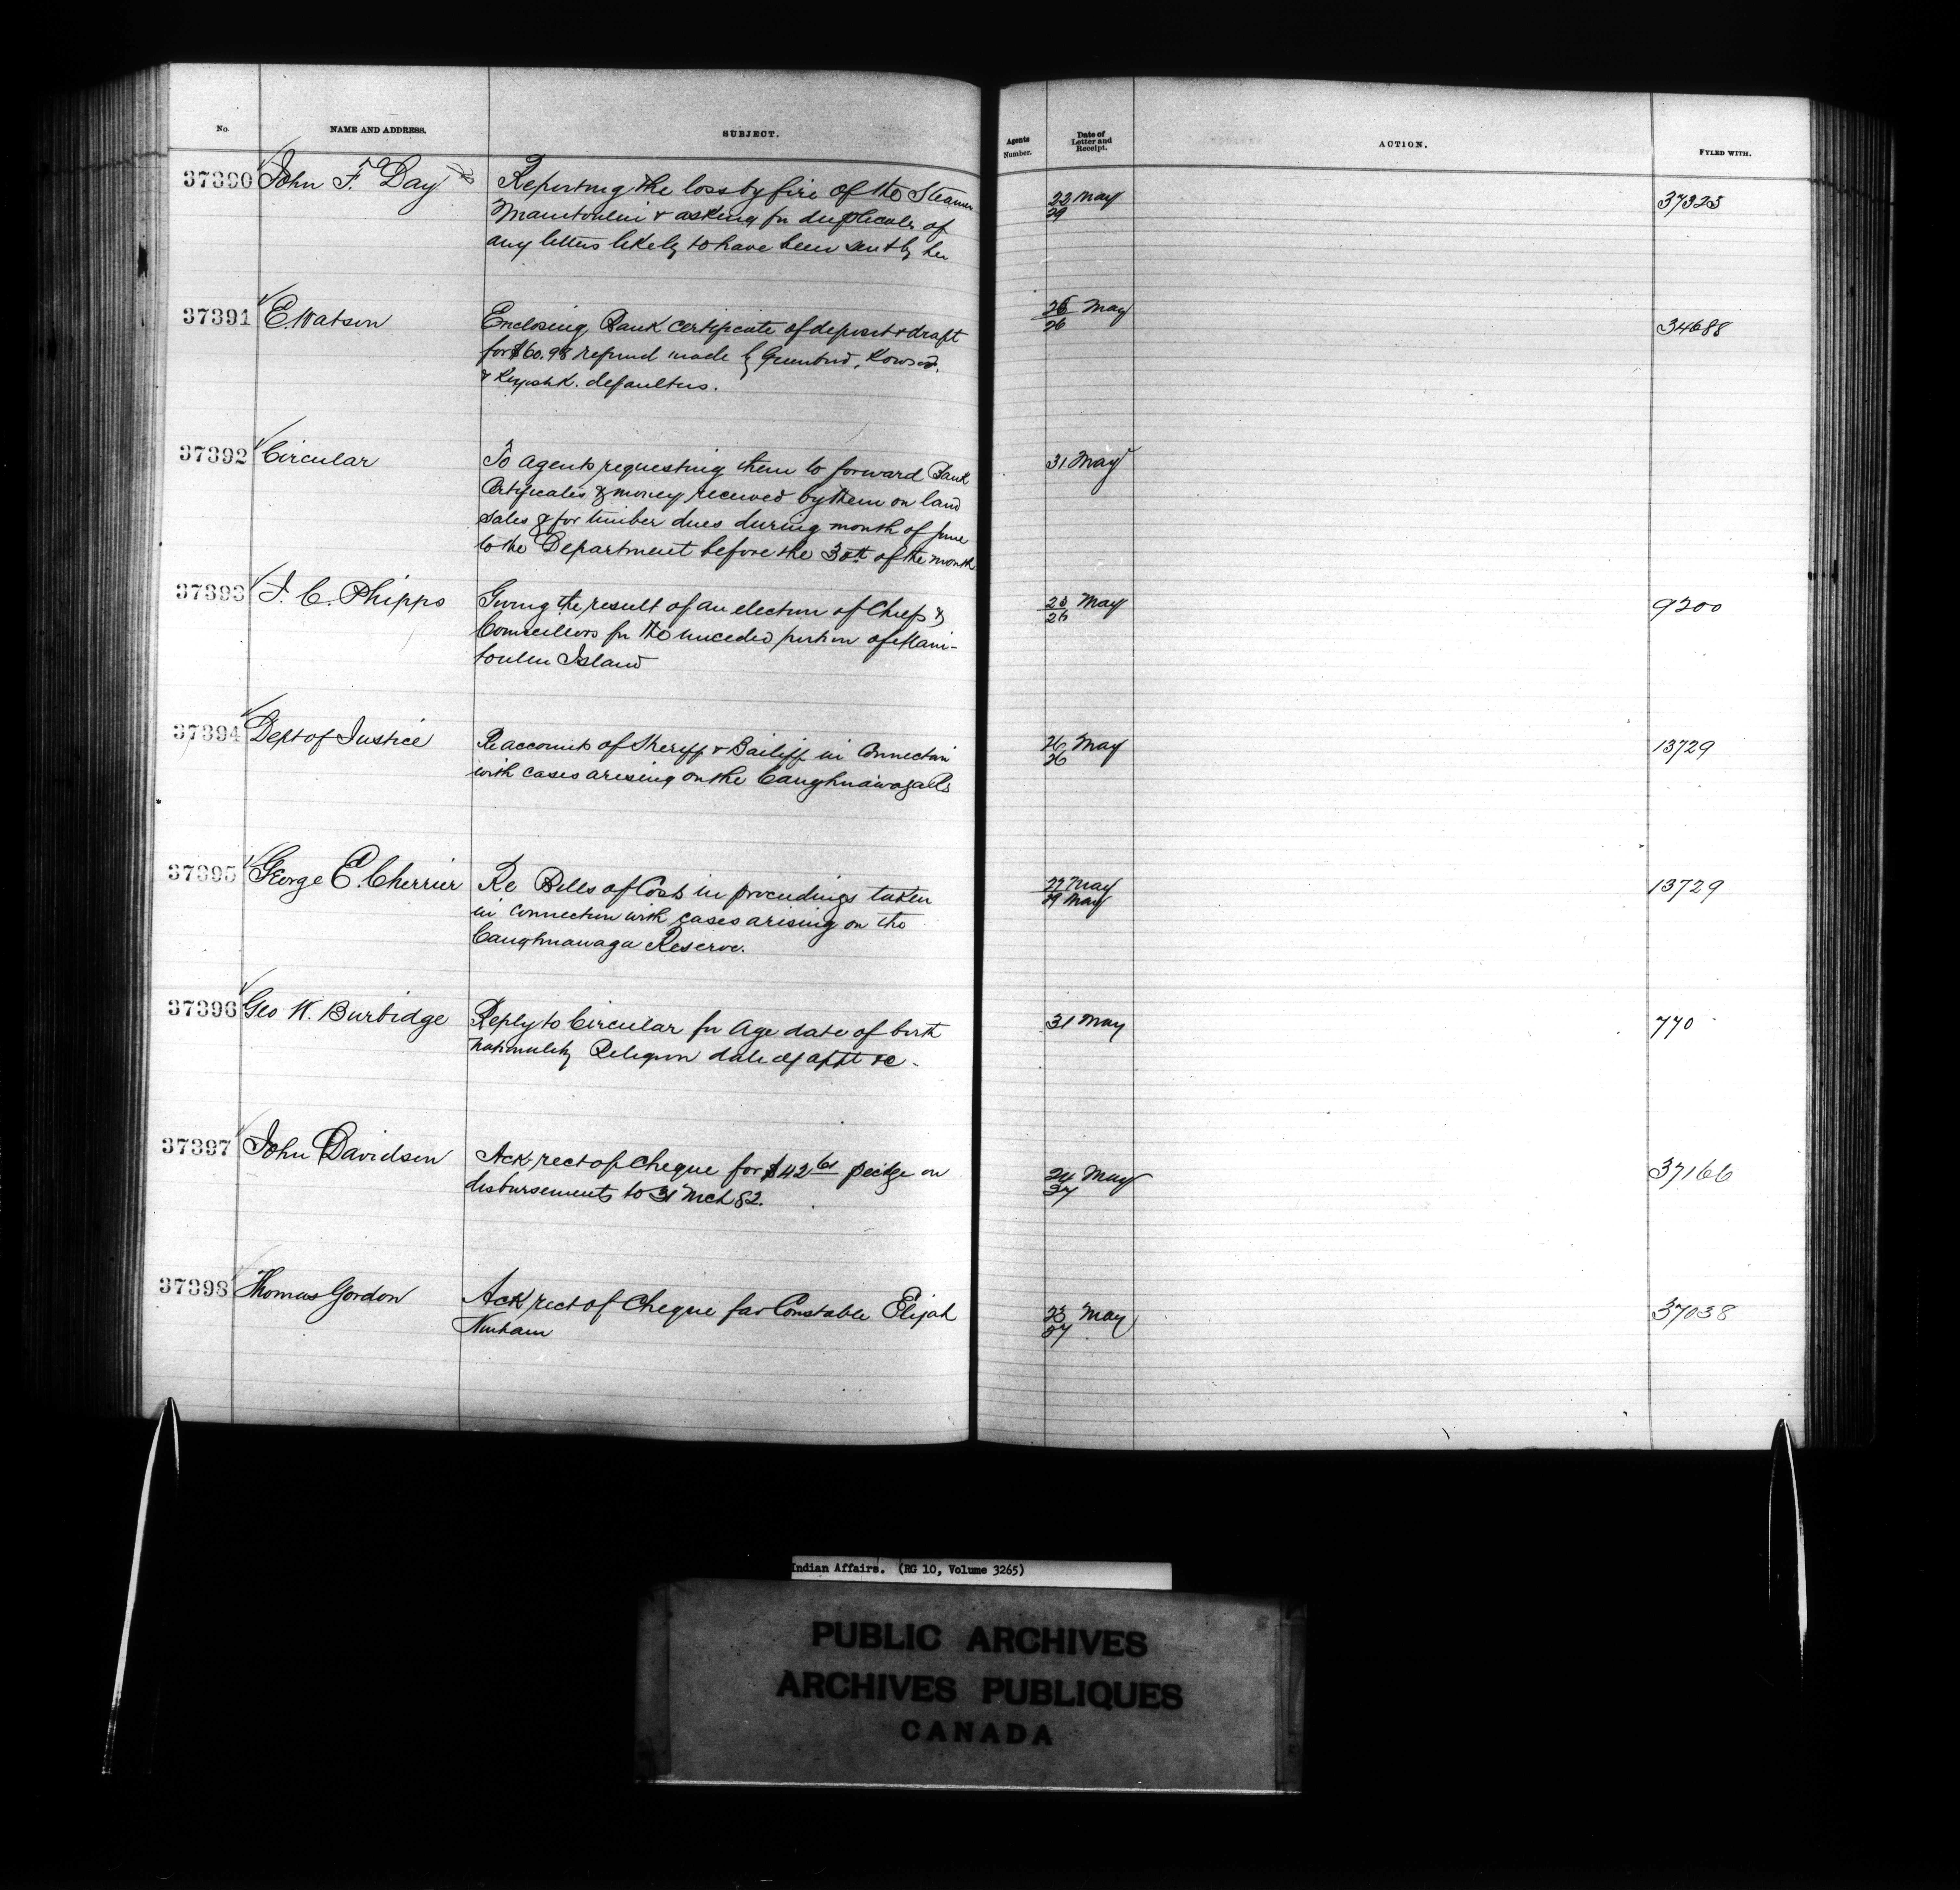 No.
NAME AND ADDRESS.
SUBJECT.
Agents Number.
Date of Letter and Receipt.
ACTION.
FYLED WITH.
37390
John F. Day
Reporting the loss by fire of the Steamer
Manitoulin & asking for duplicate of
any letters likely to have been sent by her
22 May
29
37325
37391
E. Watson
Enclosing Bank certificate of deposit & draft
for $60.98 refund made by Greenbird,
defaulters.
26 May
26
34688
37392
Circular
To Agents requesting them to forward Bank
Certificates & money received by them on land
sales & for timber dues during month of June
to the Department before the 30th of the month
31 May
37393
J. C. Phipps
Giving the result of an election of Chiefs &
Councillors for the unceded portion of Mani-
toulin Island
23 May
26
9200
37394
Dept of Justice
Re accounts of Sheriff & Bailiff in Connection
with cases arising on the Caughnawaga Rs
26 May
26
13729
37395
George E. Cherrier
Re Bills of Cost in proceedings taken
in connection with cases arising on the
Caughnawaga Reserve.
27 May
29 May
13729
37396
Geo W. Burbidge
Reply to Circular for Age date of birth
nationality Religion date of appt &c -
31 May
770
37397
John Davidson
Ack rect of Cheque for $42.61 on
disbursements to 31 Mch 82.
24 May
27
37166
37398
Thomas Gordon
Ack rect of Cheque for Constable Elijah
Ninham
23 May
27
37038
Indian Affairs. (RG 10, Volume 3265)
PUBLIC ARCHIVES
ARCHIVES PUBLIQUES
CANADA